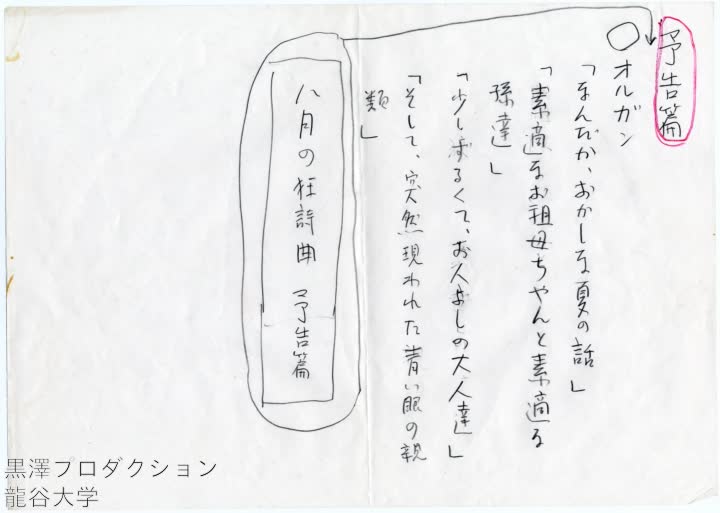 予告篇
オルガン
「なんだか、おかしな夏の話」
「素適なお祖母ちゃんと素適な
孫達」
「少しずるくて、お人よしの大人達」
「そして、突然現われた青い眼の親
類」
八月の狂詩曲 予告篇
黒澤プロダクション
龍谷大学